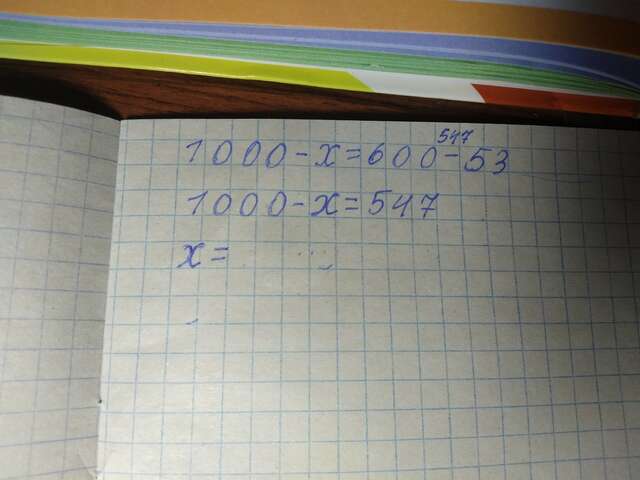 547
1000-x=600-53
1000-x=547
x=